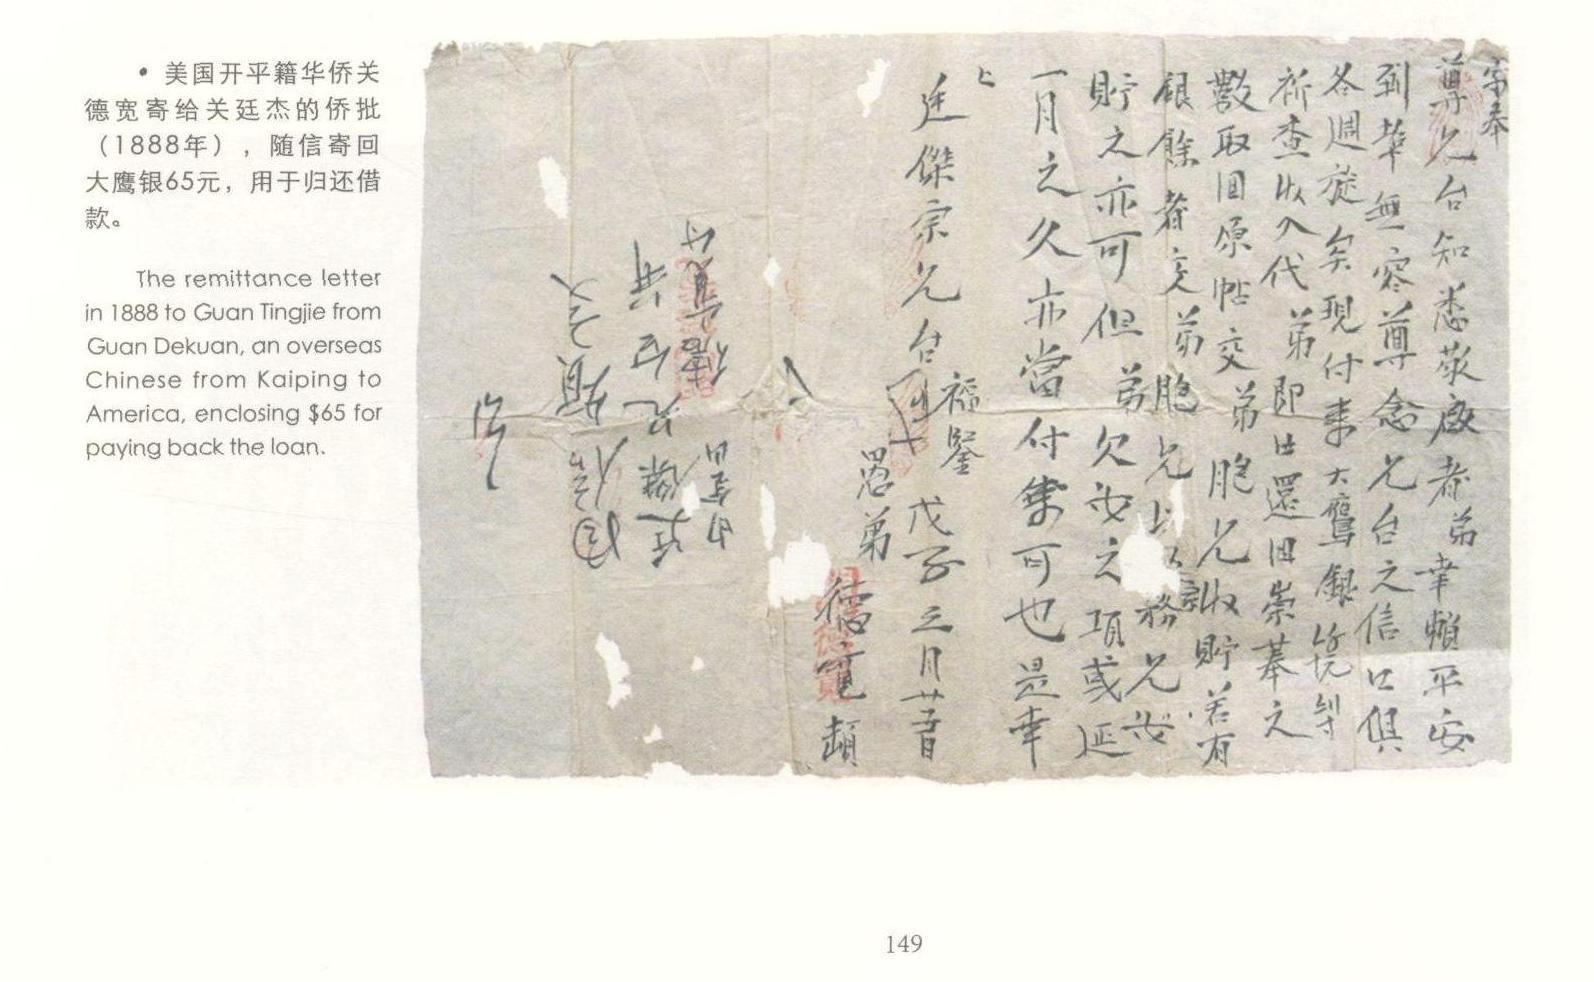 • 美国开平籍华侨关
德宽寄给关廷杰的侨批
（1888年），随信寄回
大鹰银65元，用于归还借
款。
The remittance letter
in 1888 to Guan Tingjie from
Guan Dekuan, an overseas
Chinese from Kaiping to
America, enclosing $65 for
paying back the loan.
字奉
尊兄台知悉敬啟者弟幸賴平安
到埠無容尊念兄台之信口俱
各週旋矣現付來大鷹銀
祈查收入代弟即出還旧崇基之
數取回原帖交弟胞兄收貯若有
銀餘者交弟胞兄
務兄
貯之亦可但弟欠汝之項或延
一月之久亦當付集可也是幸
上
廷傑宗兄台
福鑒
戊子三月
愚弟
德寬頓
149